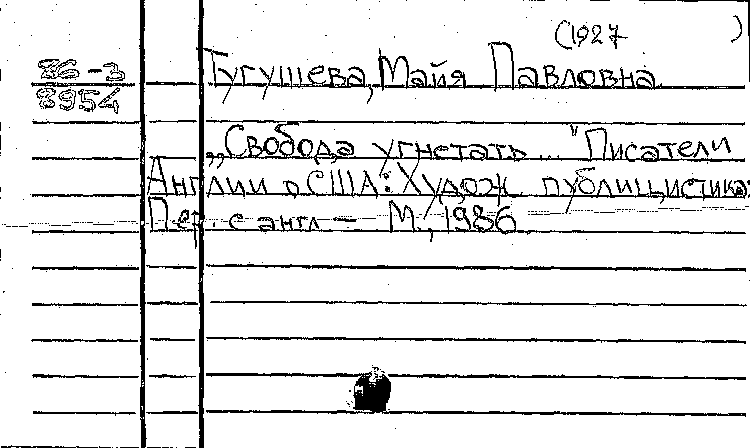 (1927 )
86-3
8954
Тугушева, Майя Павловна
„Свобода угнетать..." Писатели
Англии о США: Худож. публицистика:
Пер. с англ. — М., 1986